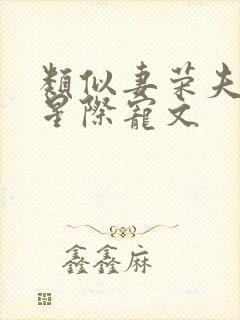 類似妻荣夫
星際寵文
鑫鑫麻